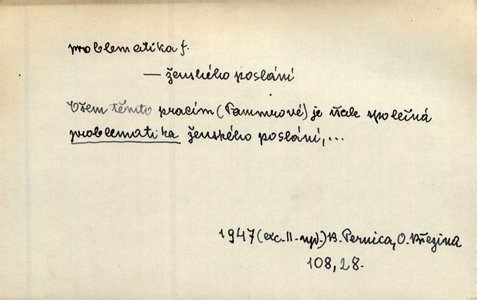 problematika f.
— ženského poslání
Všem těmto pracím (Pammrové) je však společná
problematika ženského poslání,...
1947 (exc. II-npř.) B. Pernica, O. Březina
108,28.